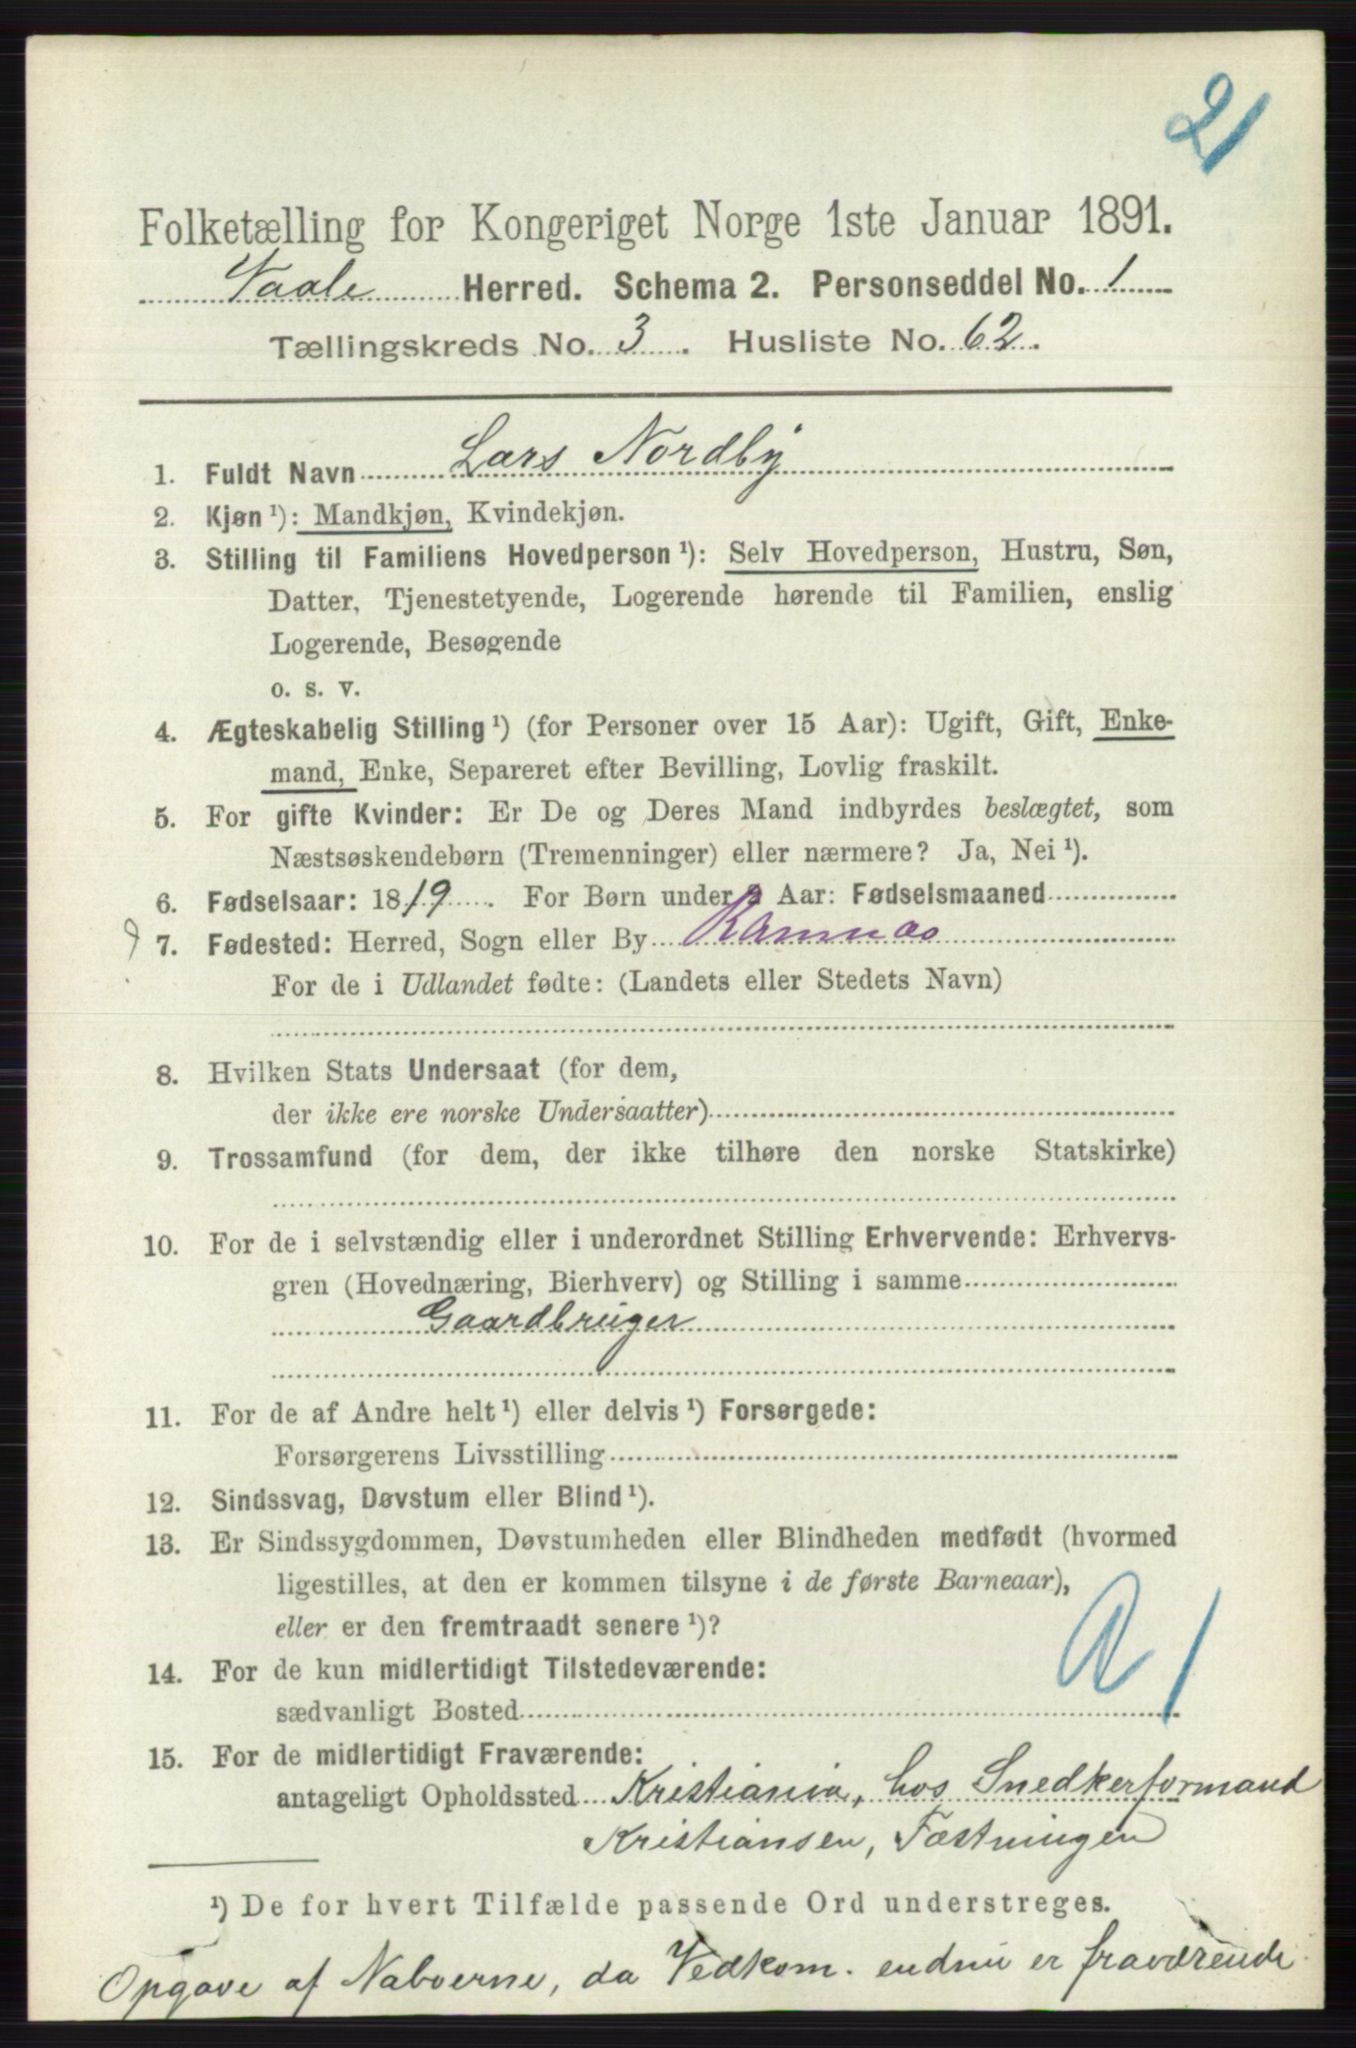 21
Folketælling for Kongeriget Norge 1ste Januar 1891.
Vaale Herred. Schema 2. Personseddel No. 1
Tællingskreds No. 3. Husliste No. 62.
1. Fuldt Navn Lars Nordby
2. Kjøn ¹): Mandkjøn, Kvindekjøn.
3. Stilling til Familiens Hovedperson ¹): Selv Hovedperson, Hustru, Søn,
Datter, Tjenestetyende, Logerende hørende til Familien, enslig
Logerende, Besøgende
o. s. v.
4. Ægteskabelig Stilling ¹) (for Personer over 15 Aar): Ugift, Gift, Enke-
mand, Enke, Separeret efter Bevilling, Lovlig fraskilt.
5. For gifte Kvinder: Er De og Deres Mand indbyrdes beslægtet, som
Næstsøskendebørn (Tremenninger) eller nærmere? Ja, Nei ¹).
6. Fødselsaar: 1819. For Børn under 2 Aar: Fødselsmaaned
7. Fødested: Herred, Sogn eller By Ramnæs
For de i Udlandet fødte: (Landets eller Stedets Navn)
8. Hvilken Stats Undersaat (for dem,
der ikke ere norske Undersaatter)
9. Trossamfund (for dem, der ikke tilhøre den norske Statskirke)
10. For de i selvstændig eller i underordnet Stilling Erhvervende: Erhvervs-
gren (Hovednæring, Bierhverv) og Stilling i samme
Gaardbruger
11. For de af Andre helt ¹) eller delvis ¹) Forsørgede:
Forsørgerens Livsstilling
12. Sindssvag, Døvstum eller Blind ¹).
13. Er Sindssygdommen, Døvstumheden eller Blindheden medfødt (hvormed
ligestilles, at den er kommen tilsyne i de første Barneaar),
eller er den fremtraadt senere ¹)?
14. For de kun midlertidigt Tilstedeværende:
sædvanligt Bosted
15. For de midlertidigt Fraværende:
antageligt Opholdssted Kristiania, hos Snedkerformand
Kristiansen, Fæstningen
¹) De for hvert Tilfælde passende Ord understreges.
Opgave af Naboerne, da Vedkom. endnu er fraværende